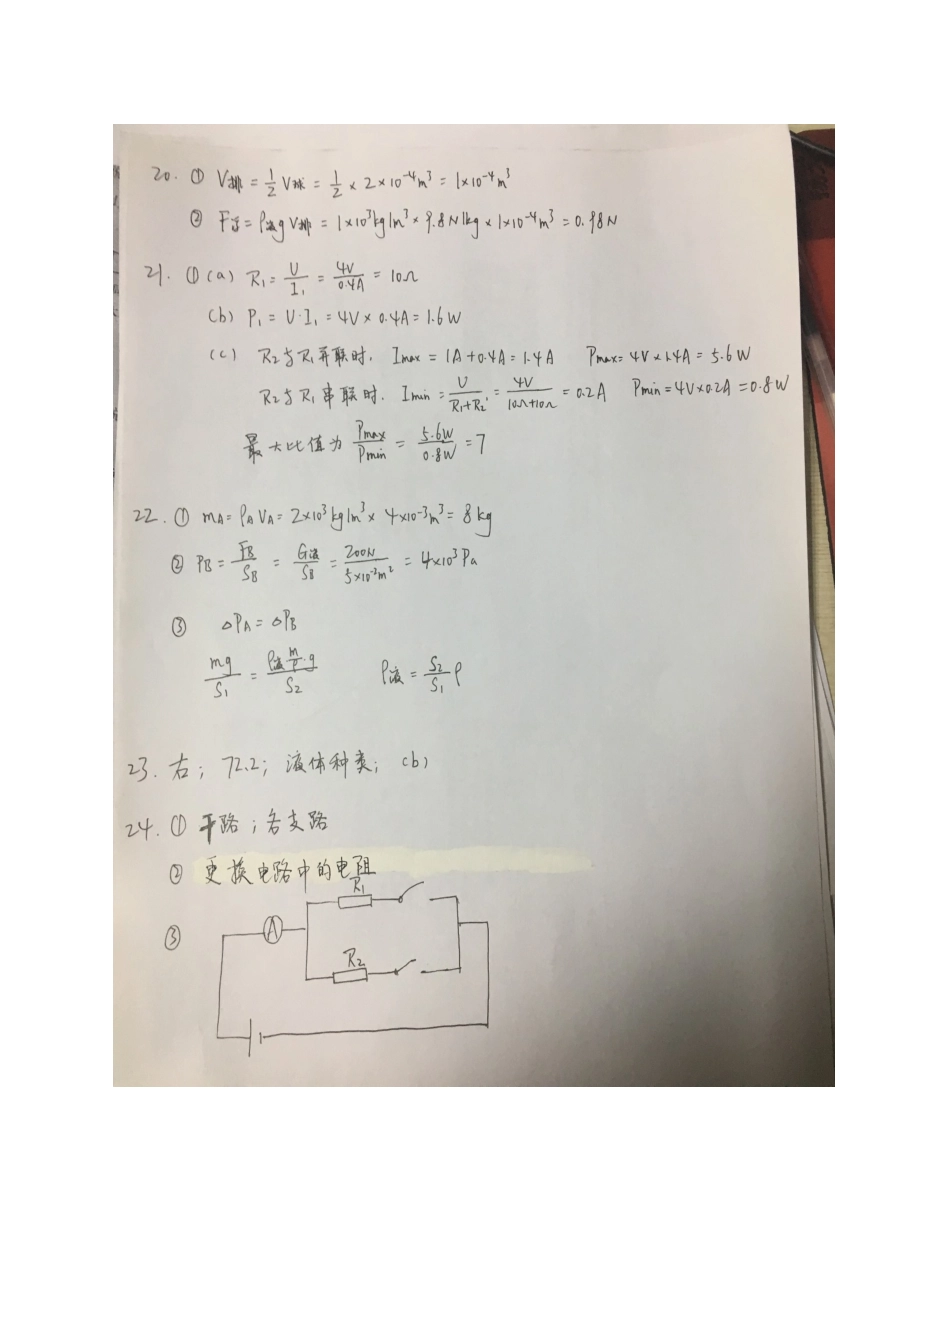 20. ① V排 = 1/2 V球 = 1/2 × 2×10⁻⁴m³ = 1×10⁻⁴m³
② F浮 = ρ液gV排 = 1×10³kg/m³ × 9.8N/kg × 1×10⁻⁴m³ = 0.98N
21. ①(a) R₁ = U/I₁ = 4V/0.4A = 10Ω
(b) P₁ = U·I₁ = 4V × 0.4A = 1.6W
(c) R₂与R₁并联时. Imax = 1A+0.4A = 1.4A Pmax = 4V×1.4A = 5.6W
R₂与R₁串联时. Imin = U/(R₁+R₂) = 4V/(10Ω+10Ω) = 0.2A Pmin = 4V×0.2A = 0.8W
最大比值为 Pmax/Pmin = 5.6W/0.8W = 7
22. ① mA = ρAVA = 2×10³kg/m³ × 4×10⁻³m³ = 8kg
② PB = FB/SB = G液/SB = 200N/5×10⁻²m² = 4×10³Pa
③ △PA = △PB
mg/S₁ = ρ液 m/ρ·g/S₂ ρ液 = S₂/S₁ ρ
23. 右; 72.2; 液体种类; (b)
24. ① 干路; 各支路
② 更换电路中的电阻
R₁
③ A
R₂